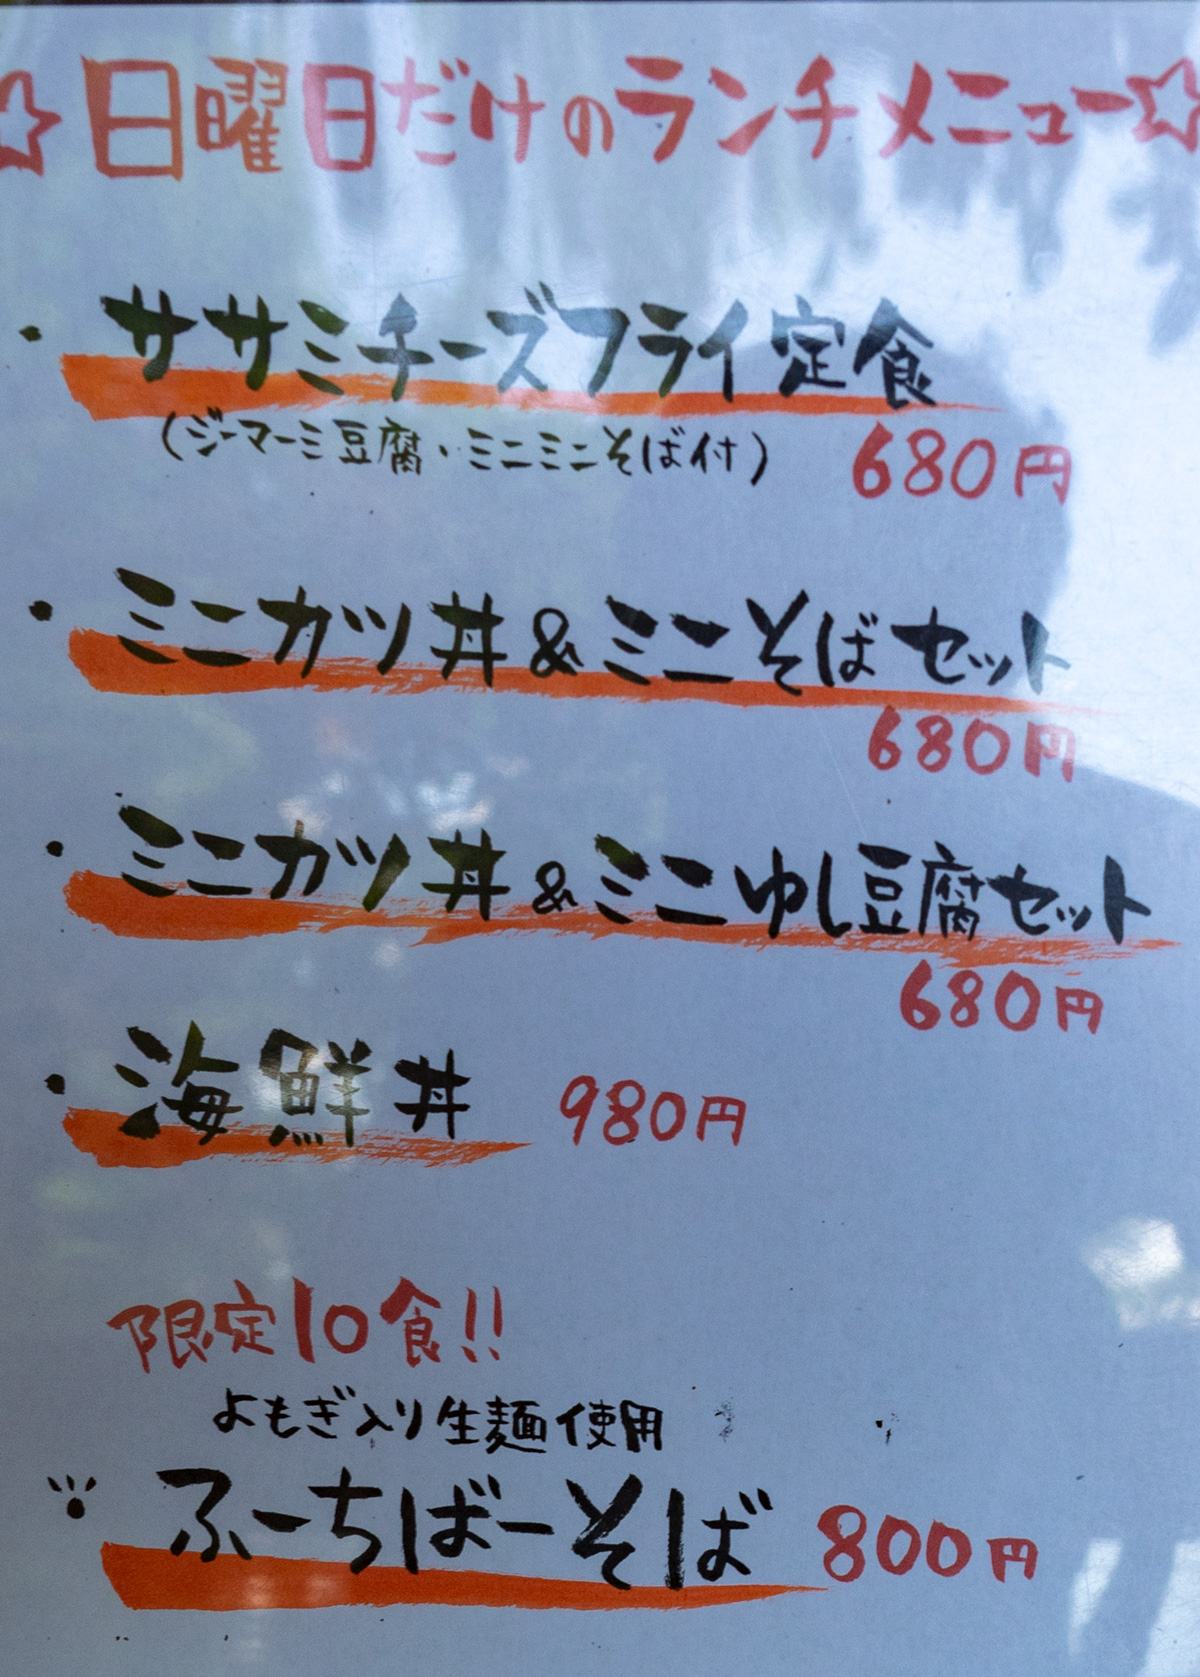 ☆日曜日だけのランチメニュー☆
・ササミチーズフライ定食
(ジーマーミ豆腐・ミニミニそば付)
680円
・ミニカツ丼&ミニそばセット
680円
・ミニカツ丼&ミニゆし豆腐セット
680円
・海鮮丼 980円
限定10食!!
よもぎ入り生麺使用
ふーちばーそば 800円